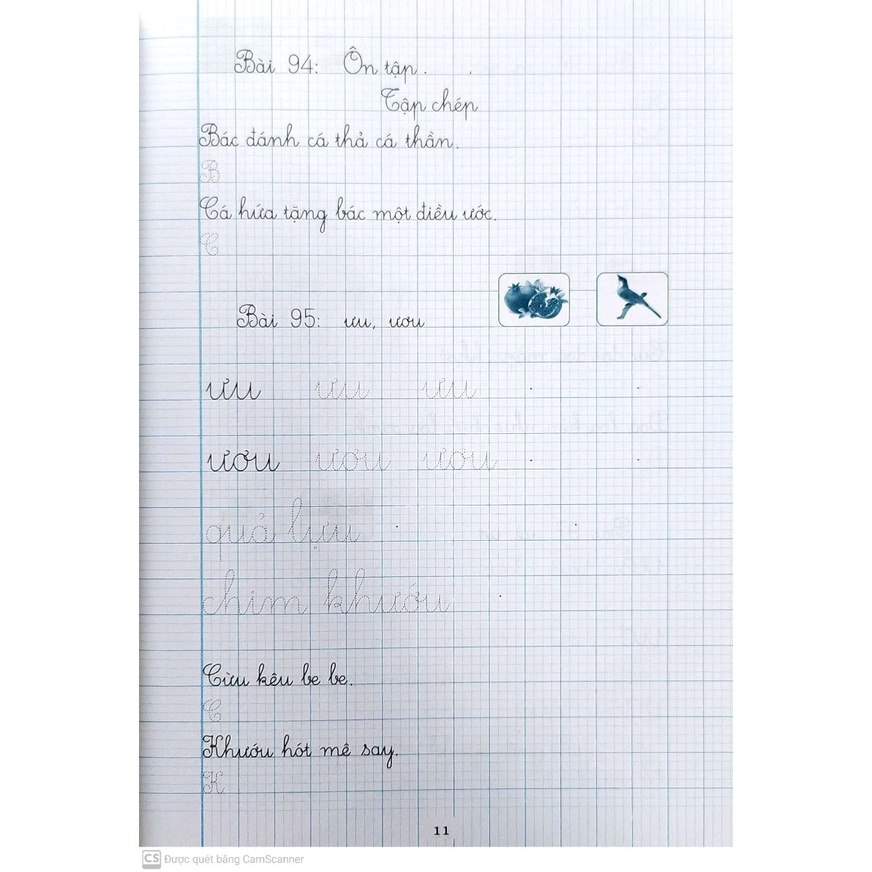 Bài 94: Ôn tập.
Tập chép
Bác đánh cá thả cá thần.
B
Cá hứa tặng bác một điều ước.
C
Bài 95: ưu, ươu
ưu ưu ưu
ươu ươu ươu
quả lựu
chim khướu
Cừu kêu be be.
C
Khướu hót mê say.
K
11
CS Được quét bằng CamScanner